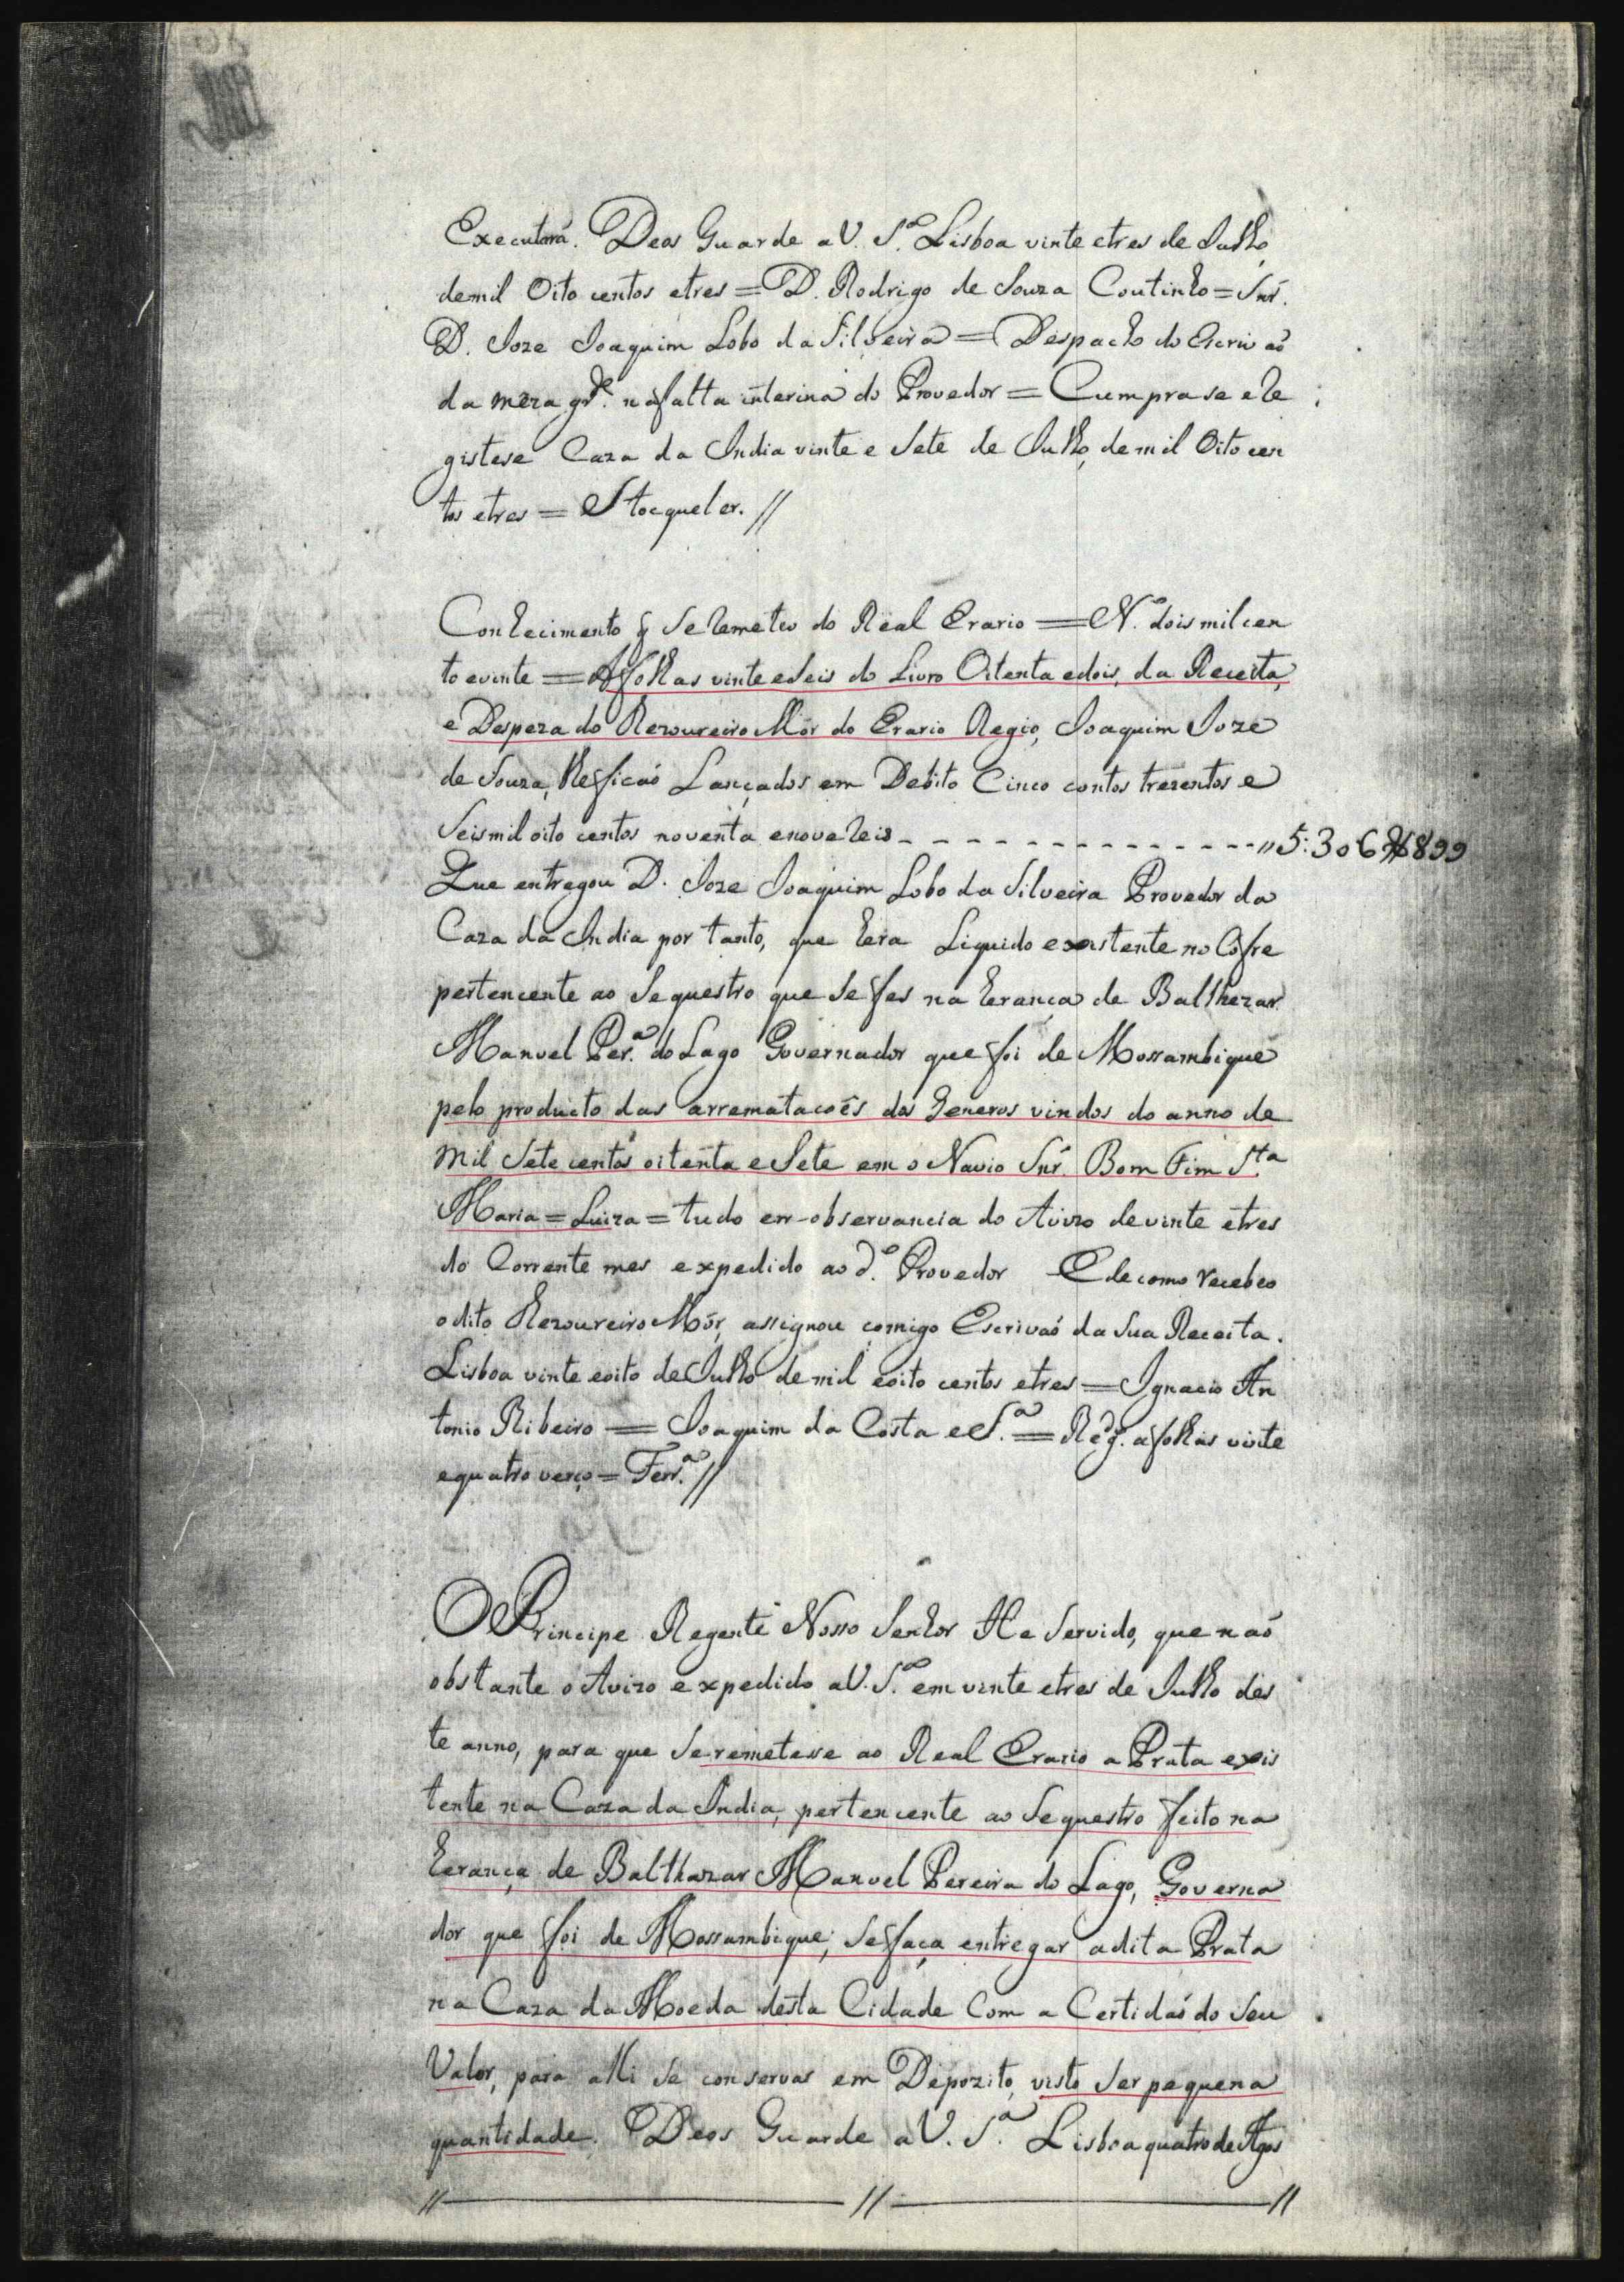 Executará. Deos Guarde a V. S.ª Lisboa vinte etres de Julho
demil Oito centos etres = D. Rodrigo de Souza Coutinho = Snr.
D. Joze Joaquim Lobo da Silveira = Despacho do Escrivaõ
da meza gr.de na falta interina do Provedor = Cumprase e Re
gistese Caza da India vinte e Sete de Julho, de mil Oito cen
tos etres = Stocqueler. //
Conhecimento q̃ Se Remeteo do Real Erario = N.º dois mil cen
to evinte = Afolhas vinte eSeis do Livro Oitenta edois, da Receita,
e Despeza do Thezoureiro Mór do Erario Regio, Joaquim Joze
de Souza, lhe ficaõ Lançados em Debito Cinco contos trezentos e
Seismil oito centos noventa enove Reis - - - - - - - - - - - - - - - " 5:306$899
Que entregou D. Joze Joaquim Lobo da Silveira Provedor da
Caza da India por tanto, que hera Liquido existente no Cofre
pertencente ao Sequestro que Se fes na herança de Balthezar
Manoel Per.ª do Lago Governador que foi de Mossambique
pelo producto das arrematacoẽs dos Generos vindos do anno de
mil Sete centos oitenta e Sete em o Navio Snr. Bom Fim S.ta
Maria = Luiza = tudo em observancia do Avizo de vinte etres
do Corrente mes expedido ao d.º Provedor E de como recebeo
odito Thezoureiro Mór, assignou comigo Escrivaõ da Sua Receita.
Lisboa vinte eoito de Julho de mil eoito centos etres = Ignacio An
tonio Ribeiro = Joaquim da Costa e S.ª = Reg.do afolhas vinte
equatro verço = Ferr.ª //
O Principe Regente Nosso Senhor He Servido, que naõ
obstante o Avizo expedido aV. S.ª em vinte etres de Julho des
te anno, para que Se remetese ao Real Erario a Prata exis
tente na Caza da India, pertencente ao Sequestro feito na
herança de Balthazar Manoel Pereira do Lago, Governa
dor que foi de Mossambique; Se faça entregar adita Prata
na Caza da Moeda desta Cidade Com a Certidaõ do Seu
Valor, para alli Se conservar em Depozito, visto Ser pequena
quantidade. Deos Guarde aV. S.ª Lisboa quatro de Agos
// ———— // ———— //